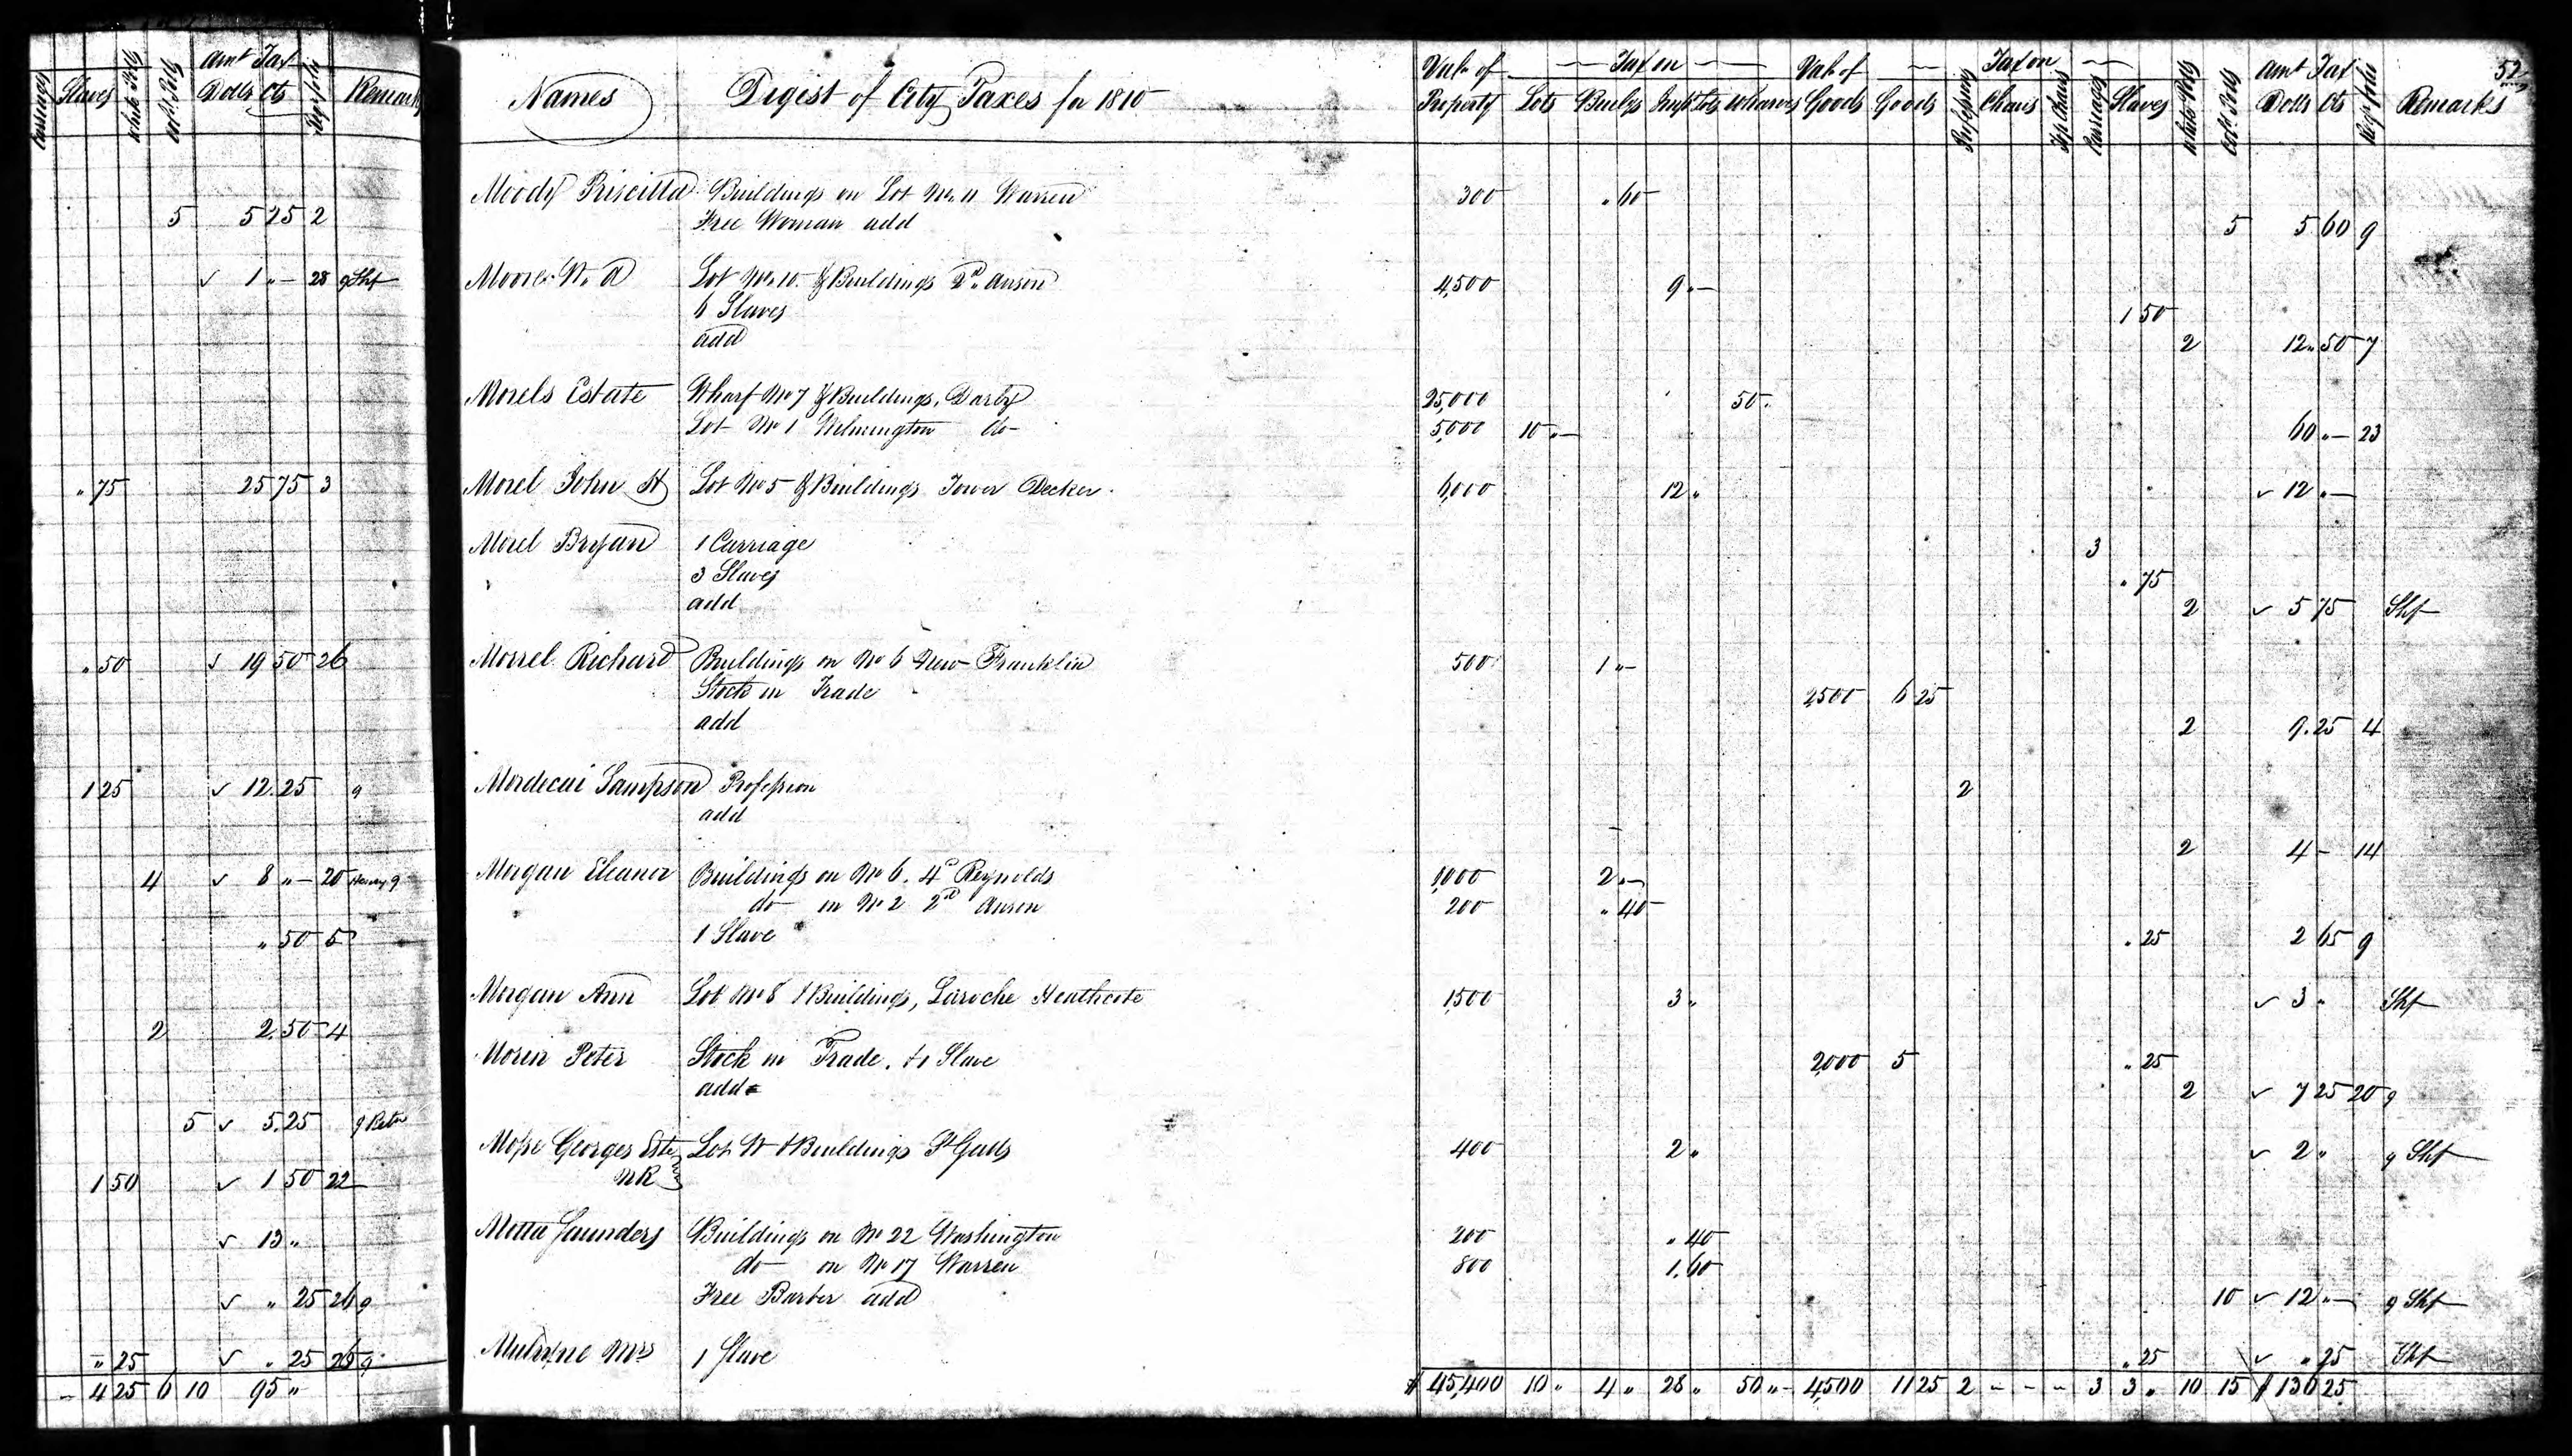 Carriages Slaves White Polls Cold. Polls Amt Tax Dolls Cts Rect folio Remarks
5 5 25 2
✓ 1 „ — 28 g Shf
„ 75 25 75 3
„ 50 ✓ 19 50 26
1 25 ✓ 12.25 g
4 ✓ 8 „ — 20 g
„ 50 5
2 2.50 4
5 ✓ 5.25 g
1 50 ✓ 1 50 22
✓ 13 „
✓ „ 25 26 g
„ 25 ✓ „ 25 26 g
— 4 25 6 10 95 „
52
Names Digest of City Taxes for 1810
Valu of Property Tax on Lots Buildgs Impd Lots Wharves Valu of Goods Tax on Goods Profession Chairs Top Chairs Carriages Slaves White Polls Cold. Polls Amt Tax Dolls Cts folio Remarks
Moody Priscilla Buildings on Lot No. 11 Warren 300 „ 60
Free Woman add 5 5 60 9
Moore W. A Lot No. 10. & Buildings 2d. Anson 4,500 9 „ —
6 Slaves 1 50
add 2 12 „ 50 7
Morels Estate Wharf No 7 & Buildings, Darby 25,000 50 „
Lot No 1 Wilmington do 5,000 10 „ — 60 „ — 23
Morel John H Lot No 5 & Buildings Tower Decker 6,000 12 „ ✓ 12 „ —
Morel Bryan 1 Carriage 3
3 Slaves „ 75
add 2 ✓ 5 75 Shf
Morrel Richard Buildings on No 6 New Franklin 500 1 „ —
Stock in Trade 2500 6 25
add 2 9.25 4
Mordecai Sampson Profession 2
add
2 4 — 14
Morgan Eleanor Buildings on No 6. 4th Reynolds 1,000 2 „ —
do on No 2 2d Anson 200 „ 40
1 Slave „ 25 2 65 9
Morgan Ann Lot No 8 & Buildings, Laroche Heathcote 1,500 3 „ ✓ 3 „ Shf
Morin Peter Stock in Trade, & 1 Slave 2,000 5 „ 25
add 2 ✓ 7 25 20 g
Mosse Georges Este Lot W & Buildings St Galls 400 2 „ ✓ 2 „ g Shf
NR
Motta Saunders Buildings on No 22 Washington 200 „ 40
do on No 17 Warren 800 1.60
Free Barber add 10 ✓ 12 „ — g Shf
Mulryne Mrs 1 Slave „ 25 ✓ „ 25 Shf
$ 45,400 10 „ 4 „ 28 „ 50 „ — 4,500 11 25 2 — — — 3 3 „ 10 15 $ 136 25